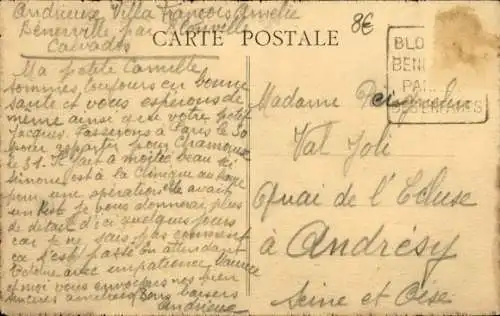 Andrieux Villa François Amélie
Benerville par Blonville
Calvados
CARTE POSTALE
8€
BLO
BENE
PA
Ma petite Camille
Sommes toujours en bonne
santé et vous espérons de
même ainsi que votre petit
Jacques. Passerons à Paris le 30
pour partir pour Chamonix
le 31. Il fait à moitié beau ici
Simone est à la Clinique au
pour une opération elle avait
un je vous donnerai plus
de détail d'ici quelques jours
car je ne sais pas comment
ça s'est passé. En attendant
avec impatience Maurice
et moi vous envoyons nos bien
sincères amitiés Bons baisers
Andrieux
Madame
Val Joli
Quai de l'Ecluse
à Andrésy
Seine et Oise